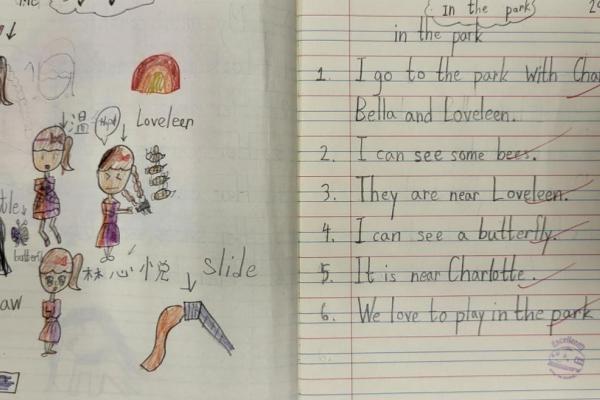 Loveleen
温
Help!
butterfly
林心悦
slide
in the park
in the park
1. I go to the park with
Bella and Loveleen.
2. I can see some bees.
3. They are near Loveleen.
4. I can see a butterfly.
5. It is near Charlotte.
6. We love to play in the park
Excellent